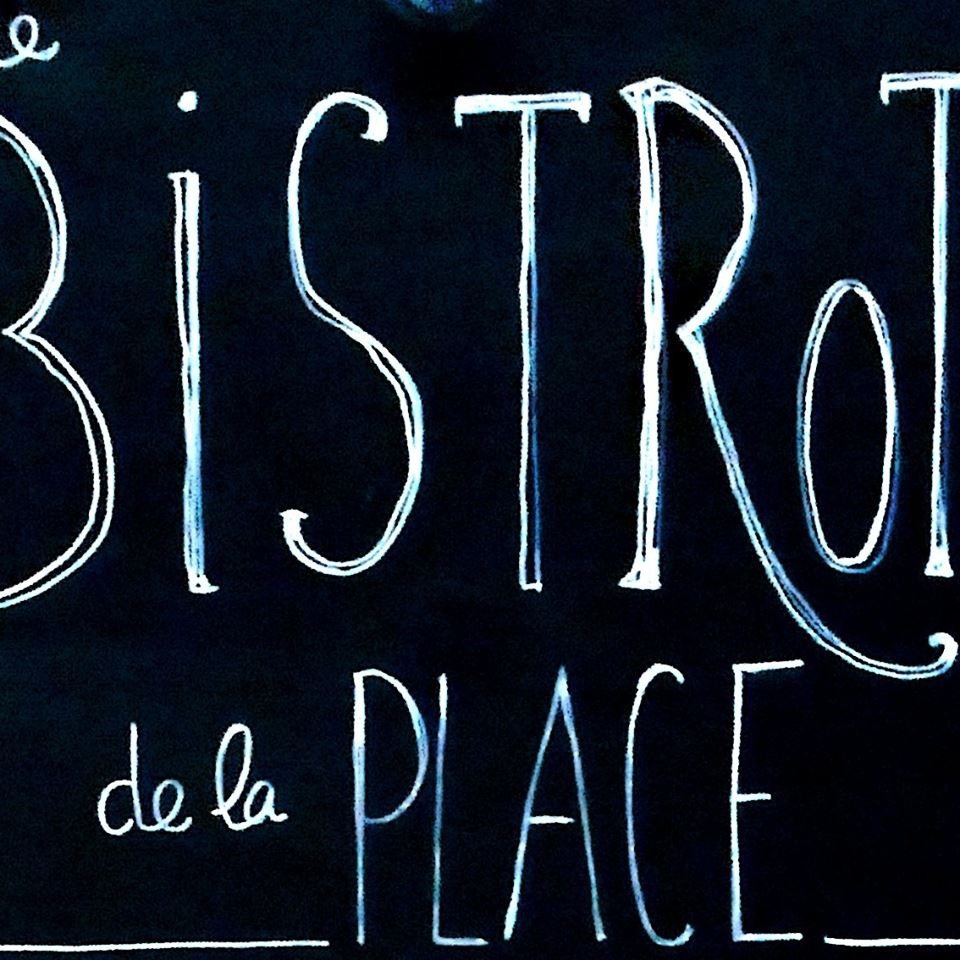 e
BiSTRoT
de la PLACE